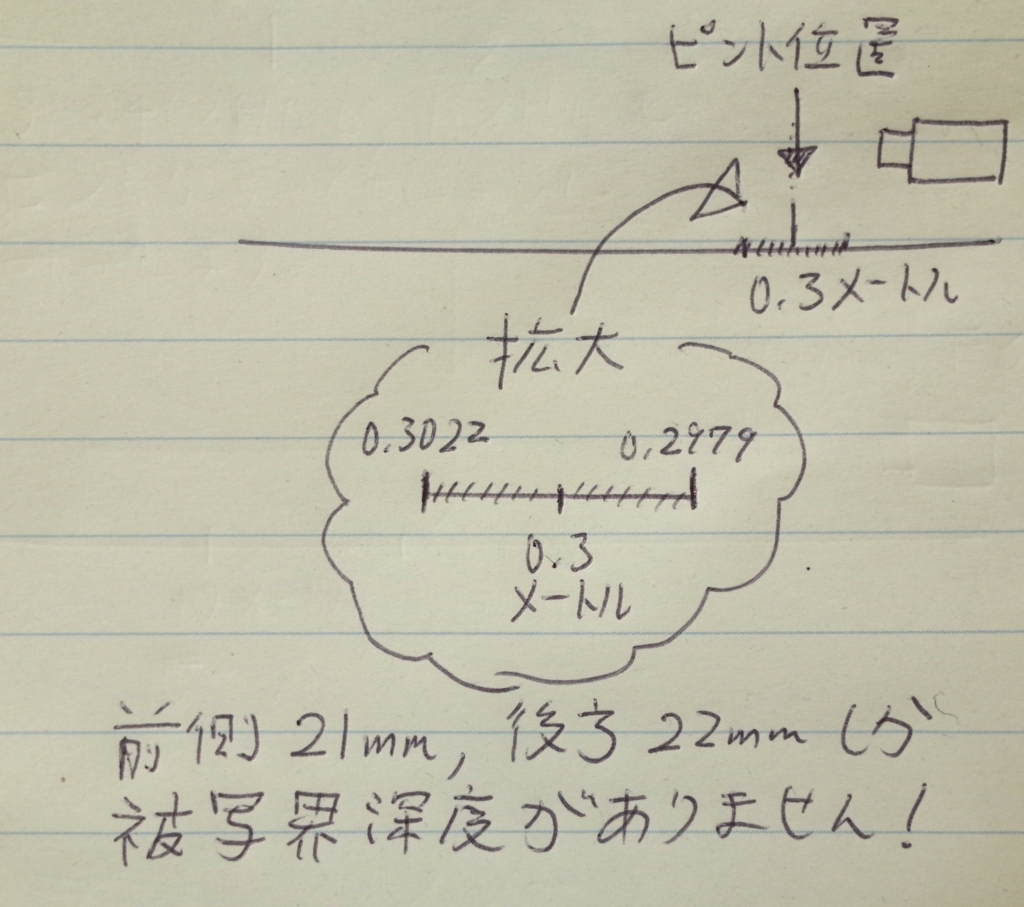 ピント位置
0.3メートル
拡大
0.3022 0.2979
0.3
メートル
前側21mm, 後方22mmしか
被写界深度がありません!